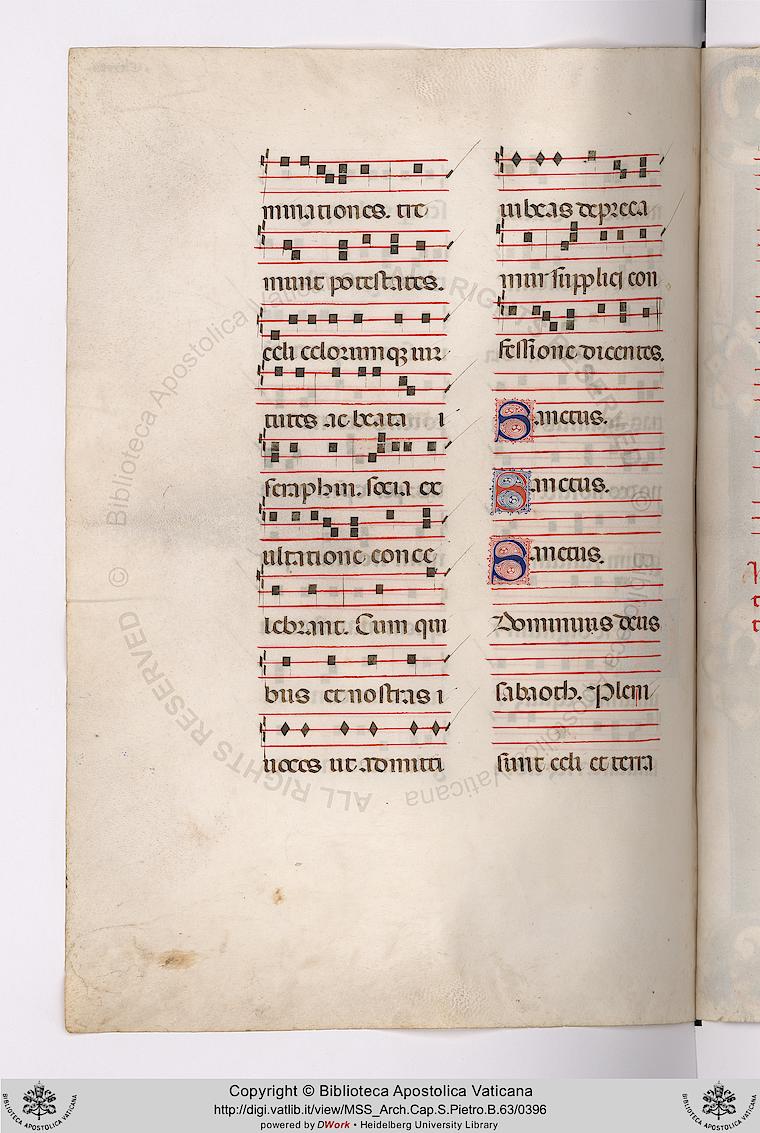 minationes. tre
munt potestates.
celi celorumq; uir
tutes ac beata i
seraphin. socia ex
ultatione conce
lebrant. Cum qui
bus et nostras i
uoces ut admitti
iubeas depreca
mur supplici con
fessione dicentes.
Sanctus.
Sanctus.
Sanctus.
Dominus deus
sabaoth. Pleni
sunt celi et terra
© Biblioteca Apostolica Vaticana ALL RIGHTS RESERVED
© Biblioteca Apostolica Vaticana ALL RIGHTS RESERVED
Copyright © Biblioteca Apostolica Vaticana
http://digi.vatlib.it/view/MSS_Arch.Cap.S.Pietro.B.63/0396
powered by DWork • Heidelberg University Library
BIBLIOTECA APOSTOLICA VATICANA
BIBLIOTECA APOSTOLICA VATICANA